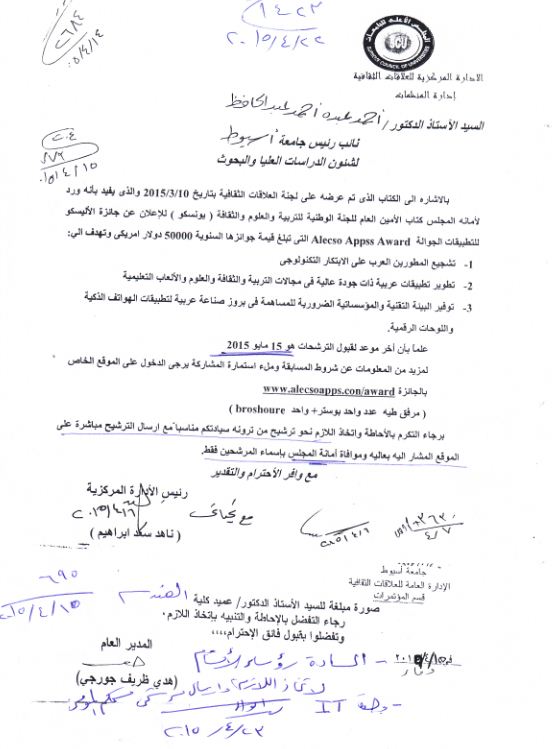 ١٤٢٣
٢٠١٥/٤/٢٢
٢٦٨٤
المجلس الأعلى للجامعات
SUPREME COUNCIL OF UNIVERSITIES
الادارة المركزية للعلاقات الثقافية
إدارة المنظمات
السيد الأستاذ الدكتور / أحمد عبده أحمد عبد الحافظ
نائب رئيس جامعة أسيوط
لشئون الدراسات العليا والبحوث
بالاشاره الى الكتاب الذى تم عرضه على لجنة العلاقات الثقافية بتاريخ 2015/3/10 والذى يفيد بأنه ورد
لأمانه المجلس كتاب الأمين العام للجنة الوطنية للتربية والعلوم والثقافة ( يونسكو ) للإعلان عن جائزة الأليسكو
للتطبيقات الجوالة Alecso Appss Award التى تبلغ قيمة جوائزها السنوية 50000 دولار امريكى وتهدف الي:
1- تشجيع المطورين العرب على الابتكار التكنولوجى
2- تطوير تطبيقات عربية ذات جودة عالية فى مجالات التربية والثقافة والعلوم والألعاب التعليمية
3- توفير البيئة التقنية والمؤسساتية الضرورية للمساهمة فى بروز صناعة عربية لتطبيقات الهواتف الذكية
واللوحات الرقمية.
علماً بأن أخر موعد لقبول الترشحات هو 15 مايو 2015
لمزيد من المعلومات عن شروط المسابقة وملء استمارة المشاركة يرجى الدخول على الموقع الخاص
بالجائزة www.alecsoapps.con/award
( مرفق طيه عدد واحد بوستر+ واحد broshoure )
برجاء التكرم بالأحاطة واتخاذ اللازم نحو ترشيح من ترونه سيادتكم مناسبا مع ارسال الترشيح مباشرة على
الموقع المشار اليه بعاليه وموافاة أمانة المجلس بإسماء المرشحين فقط.
مع وافر الأحترام والتقدير
رئيس الأدارة المركزية
٢٠١٥/٤/٦
مع تحياتى
( ناهد سعد ابراهيم )
٤/٧
جامعة أسيوط
الإدارة العامة للعلاقات الثقافية
قسم المؤتمرات
٦٩٥
٢٠١٥/٤/١٥
صورة مبلغة للسيد الأستاذ الدكتور/ عميد كلية الهندسة
رجاء التفضل بالإحاطة والتنبيه بإتخاذ اللازم،
وتفضلوا بقبول فائق الإحترام،،،،
المدير العام
(هدي ظريف جورجي)
- السادة رؤساء الأقسام
لاتخاذ اللازم وإرسال
- وحدة IT
٢٠١٥/٤/٢٣